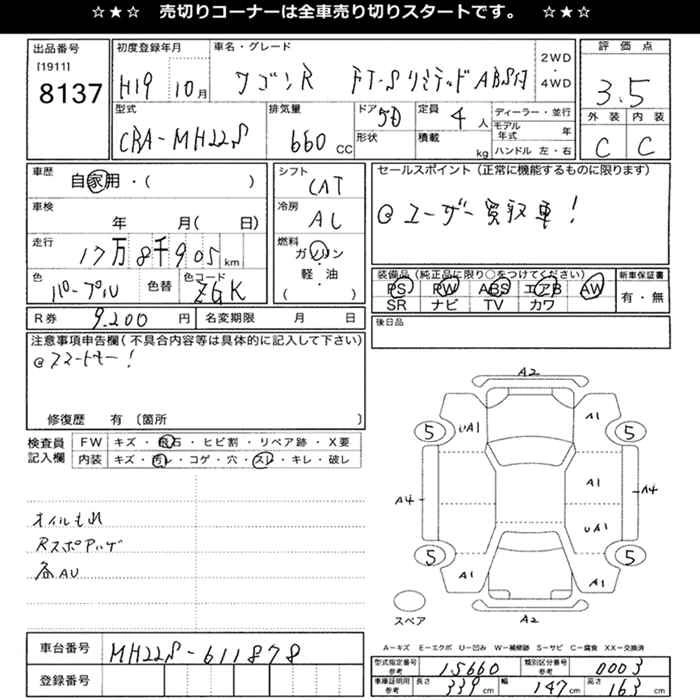 ☆★☆ 売切りコーナーは全車売り切りスタートです。 ☆★☆
出品番号 [1911] 8137
初度登録年月 H19 10月
車名・グレード ワゴンR FT-Sリミテッド ABS付
2WD・4WD
評価点 3.5
外装 内装
C C
型式 CBA-MH22S
排気量 660 CC
ドア 5D
形状
定員 4人
積載 kg
ディーラー・並行
モデル年式 年
ハンドル 左・右
車歴 自家用・( )
車検 年 月( 日)
走行 17万8千905km
色 パープル 色替
色コード ZGK
シフト CAT
冷房 AC
燃料 ガソリン・軽油
( )
セールスポイント(正常に機能するものに限ります)
@ユーザー買取車!
装備品(純正品に限り○をつけてください)
PS PW ABS エアB AW
SR ナビ TV カワ
新車保証書 有・無
後日品
R券 9.200円
名変期限 月 日
注意事項申告欄(不具合内容等は具体的に記入して下さい)
@スマートキー!
修復歴 有 〔箇所
検査員記入欄
FW キズ・飛石・ヒビ割・リペア跡・X要
内装 キズ・汚レ・コゲ・穴・スレ・キレ・破レ
オイルもれ
Rスポアハゲ
各AU
A2
5 UA1 A1 5
A1
A4 A4
UA1
5 A1 A1 5
スペア A2
A−キズ E−エクボ U−凹み W−補修跡 S−サビ C−腐食 XX−交換済
車台番号 MH22S-611878
登録番号
型式指定番号 参考 15660
類別区分番号 参考 0003
車庫証明用 参考 長さ 339cm 幅 147cm 高さ 163cm